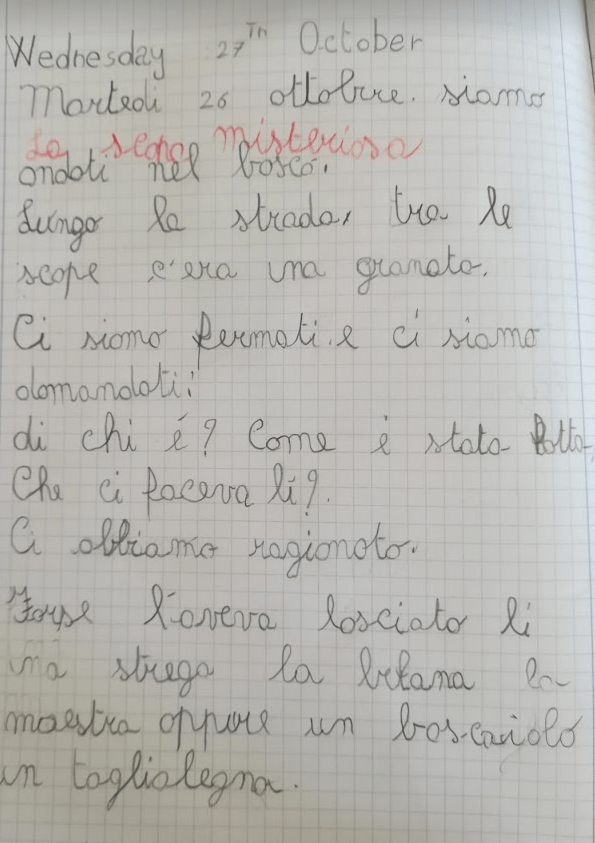 Wednesday 27Th October
Martedì 26 ottobre. siamo
La scopa misteriosa
andati nel bosco.
Lungo la strada, tra le
scope c'era una granata.
Ci siamo fermati e ci siamo
domandati:
di chi é? Come è stata fatta
Che ci faceva lí?.
Ci abbiamo ragionato.
Forse l'aveva lasciato lí
una strega la befana la
maestra oppure un boscaiolo
un taglialegna.